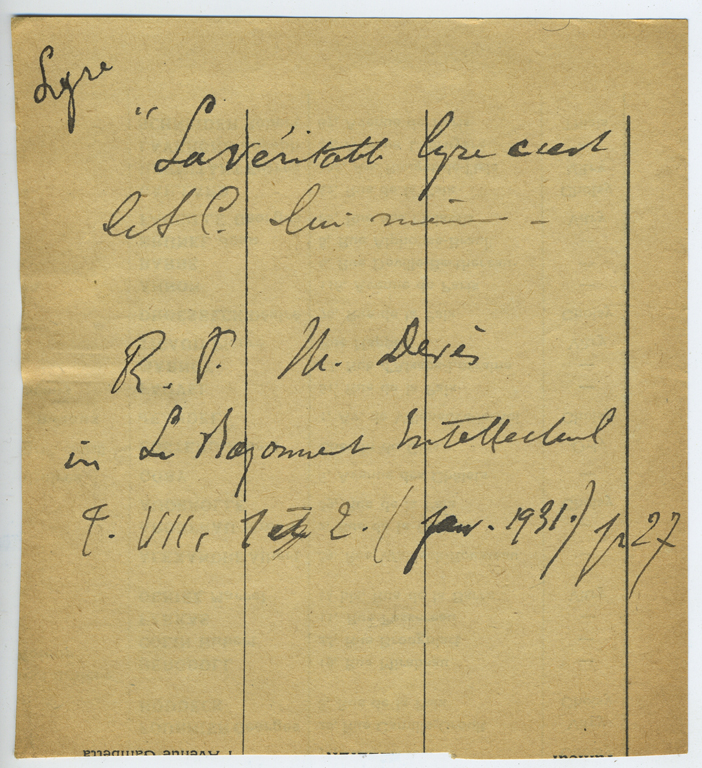 Lyre
"La véritable lyre c'est
le S C. lui même -
R. P. M. Derès
in Le Rayonnement Intellectuel
T. VII, 1 et 2. (janv. 1931.) p 27
1 Avenue Gambetta